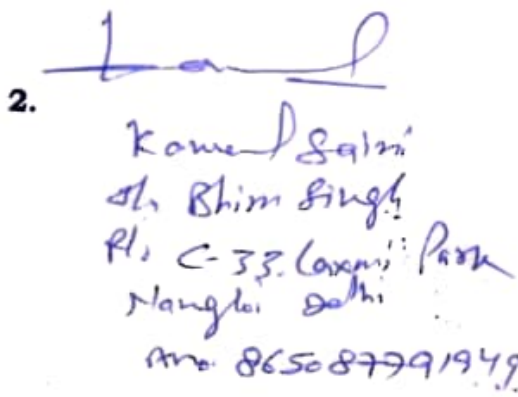 2.
Kamal Saini
S/o Bhim Singh
R/o C-33, Laxmi Park
Nangloi Delhi
Ano. 865087791949